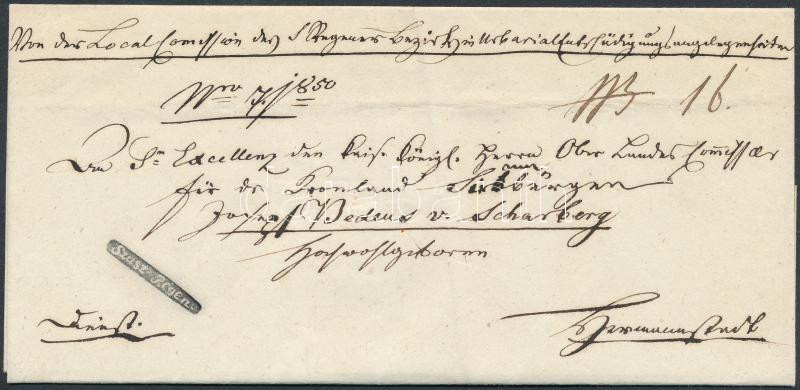 Von der Local Comission des S Regener Bezirks in Urbarial Entschädigungsangelegenheiten
Nro 7/1850
16.
An Sr Excellenz den kais. königl. Herrn Ober Landes Commissär
für das Kronland Siebenbürgen
Joseph Bedeus v. Scharberg
Hochwohlgeboren
Szász-Régen
Dienst.
Hermannstadt